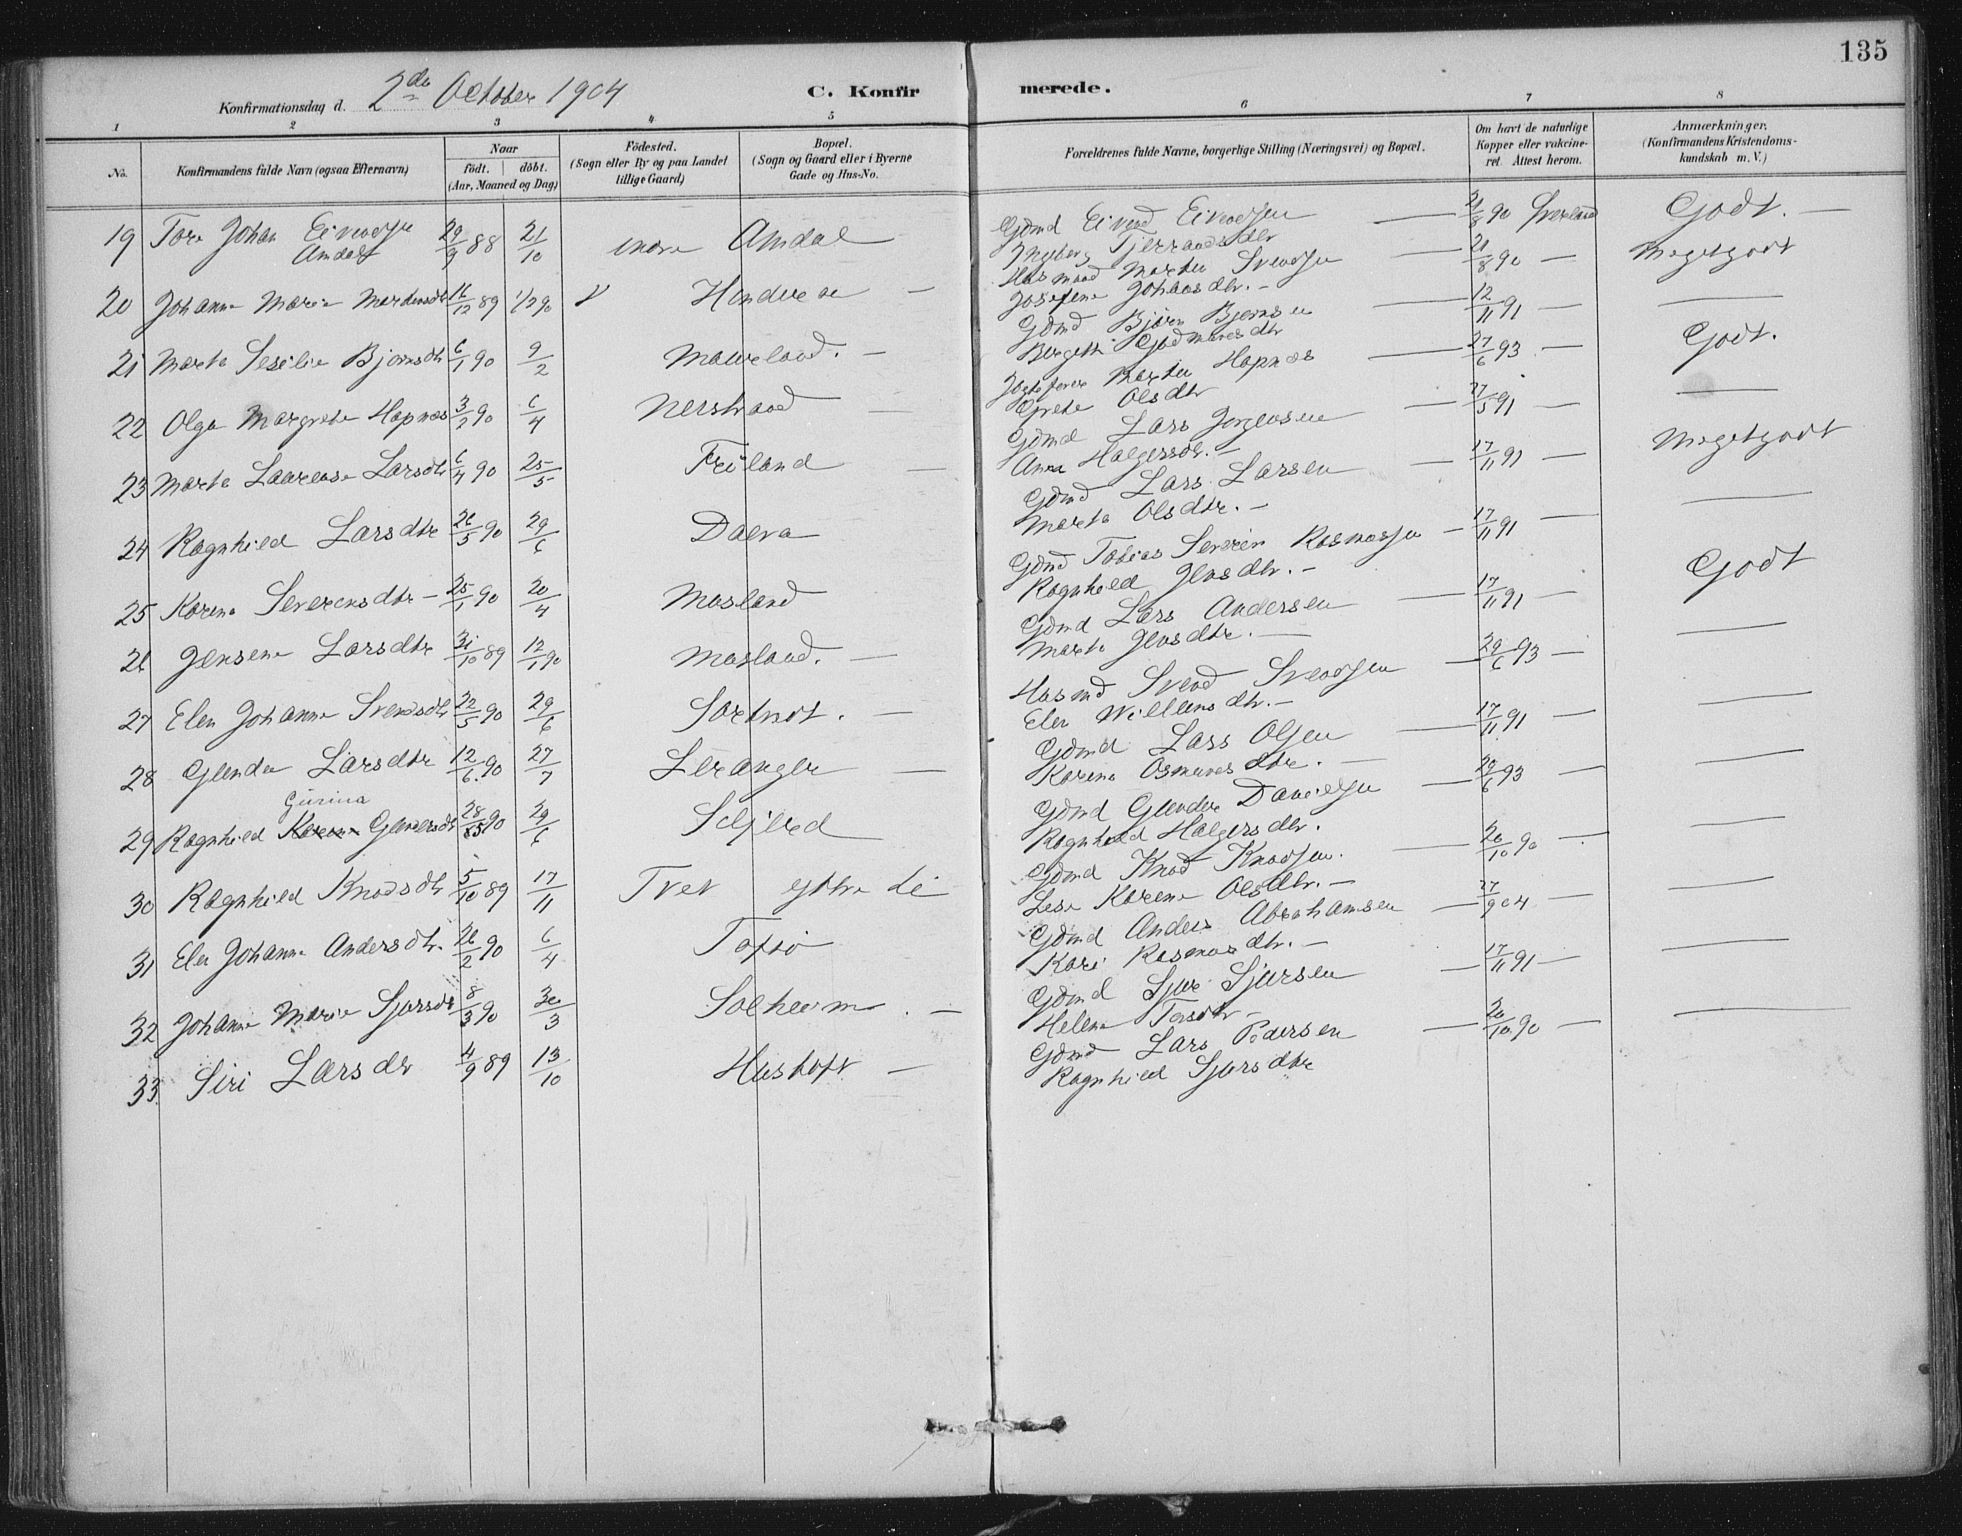 135
Konfirmationsdag d. 2de October 1904 C. Konfirmerede.
1 2 3 4 5 6 7 8
No. Konfirmandens fulde Navn (ogsaa Efternavn) Naar födt. döbt. (Aar, Maaned og Dag) Födested. (Sogn eller By og paa Landet tillige Gaard) Bopæl. (Sogn og Gaard eller i Byerne Gade og Hus-No. Forældrenes fulde Navne, borgerlige Stilling (Næringsvei) og Bopæl. Om havt de naturlige Kopper eller vakcineret. Attest herom. Anmærkninger. (Konfirmandens Kristendomskundskab m. V.)
19 Tore Johan Eivindsen Amdal 29/9 88 21/10 indre Amdal Gdmd Eivind Eivindsen 21/8 90 Godt. —
Ingeborg Tjerrandsdtr
20 Johanne Marie Mortensdtr 16/12 89 1/2 90 Hinderaa — Husmand Morten Svendsen 21/8 90 — Megetgodt
Josefine Johnsdtr. —
21 Marta Sesilie Bjørnsdtr 6/1 90 9/2 Maureland. — Gdmd Bjørn Bjørnsen — 12/11 91 —
Bergette Gudmundsdtr
22 Olga Margrete Hopnæs 3/2 90 6/4 Nerstrand — Morten Hopnæs — 27/6 93 — Godt.
Grete Olsdtr
23 Marta Laurense Larsdtr 6/4 90 25/5 Friland — Gdmd Lars Jørgensen — 27/5 91 —
Anna Halgersdtr. —
24 Ragnhild Larsdtr 26/5 90 29/6 Gdmd Lars Larsen — 17/11 91 — Megetgodt
Marta Olsdtr. —
25 Karine Severinsdtr — 25/1 90 20/4 Masland Gdmd Tobias Severin Rasmussen — 17/11 91 —
Ragnhild Jensdtr. —
26 Jensine Larsdtr 31/10 89 12/1 90 Masland. — Gdmd Lars Andersen — 17/11 91 — Godt
Marta Jensdtr. —
27 Elen Johanne Svendsdtr 22/5 90 29/6 — Husmd Svend Svendsen — 29/6 93 —
Elen Willumsdtr. —
28 Glende Larsdtr 12/6 90 27/7 Leranger — Gdmd Lars Olsen — 17/11 91 —
Karine Osmundsdtr. —
Gurina
29 Ragnhild Karine Glendersdtr 28/5 90 29/6 Gdmd Glender Danielsen — 29/6 93 —
Ragnhild Halgersdtr.
30 Ragnhild Knudsdtr 5/10 89 17/11 Tvet ytre Li Gdmd Knud Knudsen. — 20/10 90 —
Lese Karine Olsdtr. —
31 Elen Johanne Andersdtr. 26/2 90 6/4 Toftø Gdmd Anders Abrahamsen — 27/9 04 —
Kari Rasmusdtr. —
32 Johanne Marie Sjursdtr 8/3 90 30/3 Solheim . — Gdmd Sjur Sjursen — 17/11 91 —
Helene Torsdtr —
33 Siri Larsdtr 4/9 89 13/10 Hustoft — Gdmd Lars Pedersen — 20/10 90 —
Ragnhild Sjursdtr